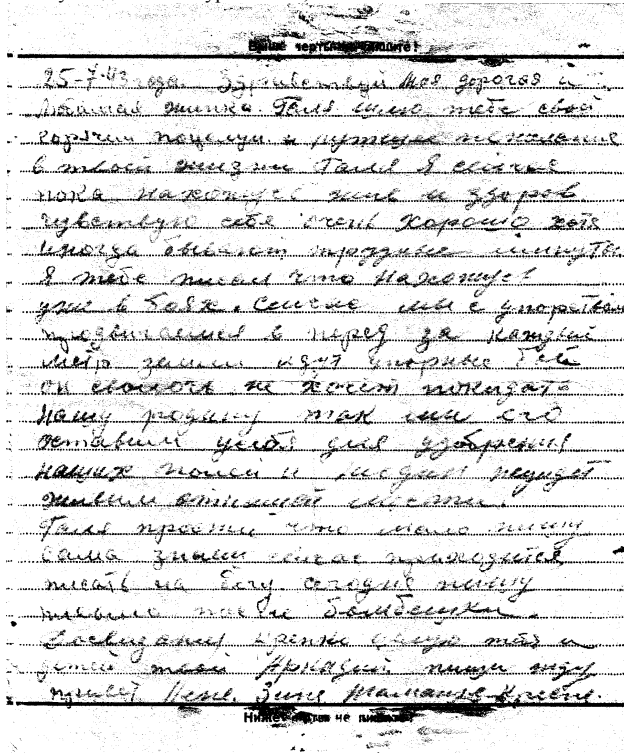 Выше черты не пишите!
25-7-43 года. Здравствуй моя дорогая и
любимая жинка. Галя шлю тебе свой
горячий поцелуй и
в твоей жизни Галя я сейчас
пока нахожусь жив и здоров
чувствую себя очень хорошо хотя
иногда бывают трудные минуты.
Я тебе писал что нахожусь
уже в боях. Сейчас мы с упорством
продвигаемся в перед за каждый
метр земли идут упорные бои
он сволочь не хочет покидать
нашу родину так мы его
оставим у себя для удобрения
наших полей и
живым
Галя прости что мало пишу
сама знаеш сейчас приходится
писать на бегу сегодня пишу
письмо после бомбёшки.
Досвидания крепко целую тебя и
детей твой Аркадий. пиши жду
привет Зине
Ниже черты не пишите!